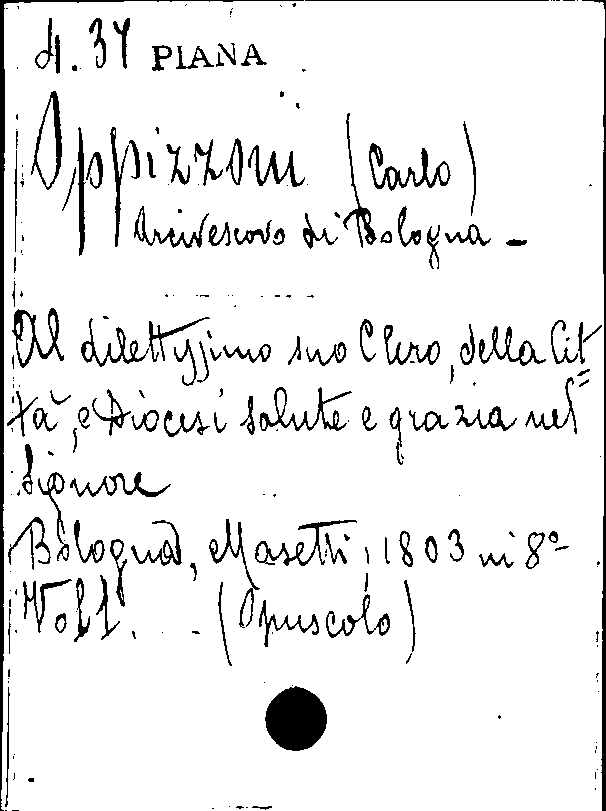 4. 37 PIANA
Oppizzoni (Carlo)
Arcivescovo di Bologna -
Al dilettissimo suo Clero, della Cit
tà, e Diocesi salute e grazia nel
Signore
Bologna, Masetti, 1803 in 8º
Vol 1. (Opuscolo)